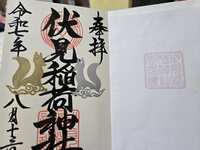 奉拝
伏見稲荷神社
令和七年
八月十三